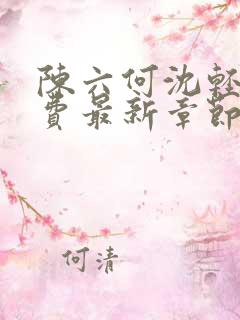 陳六何沈輕
費最新章節
何清